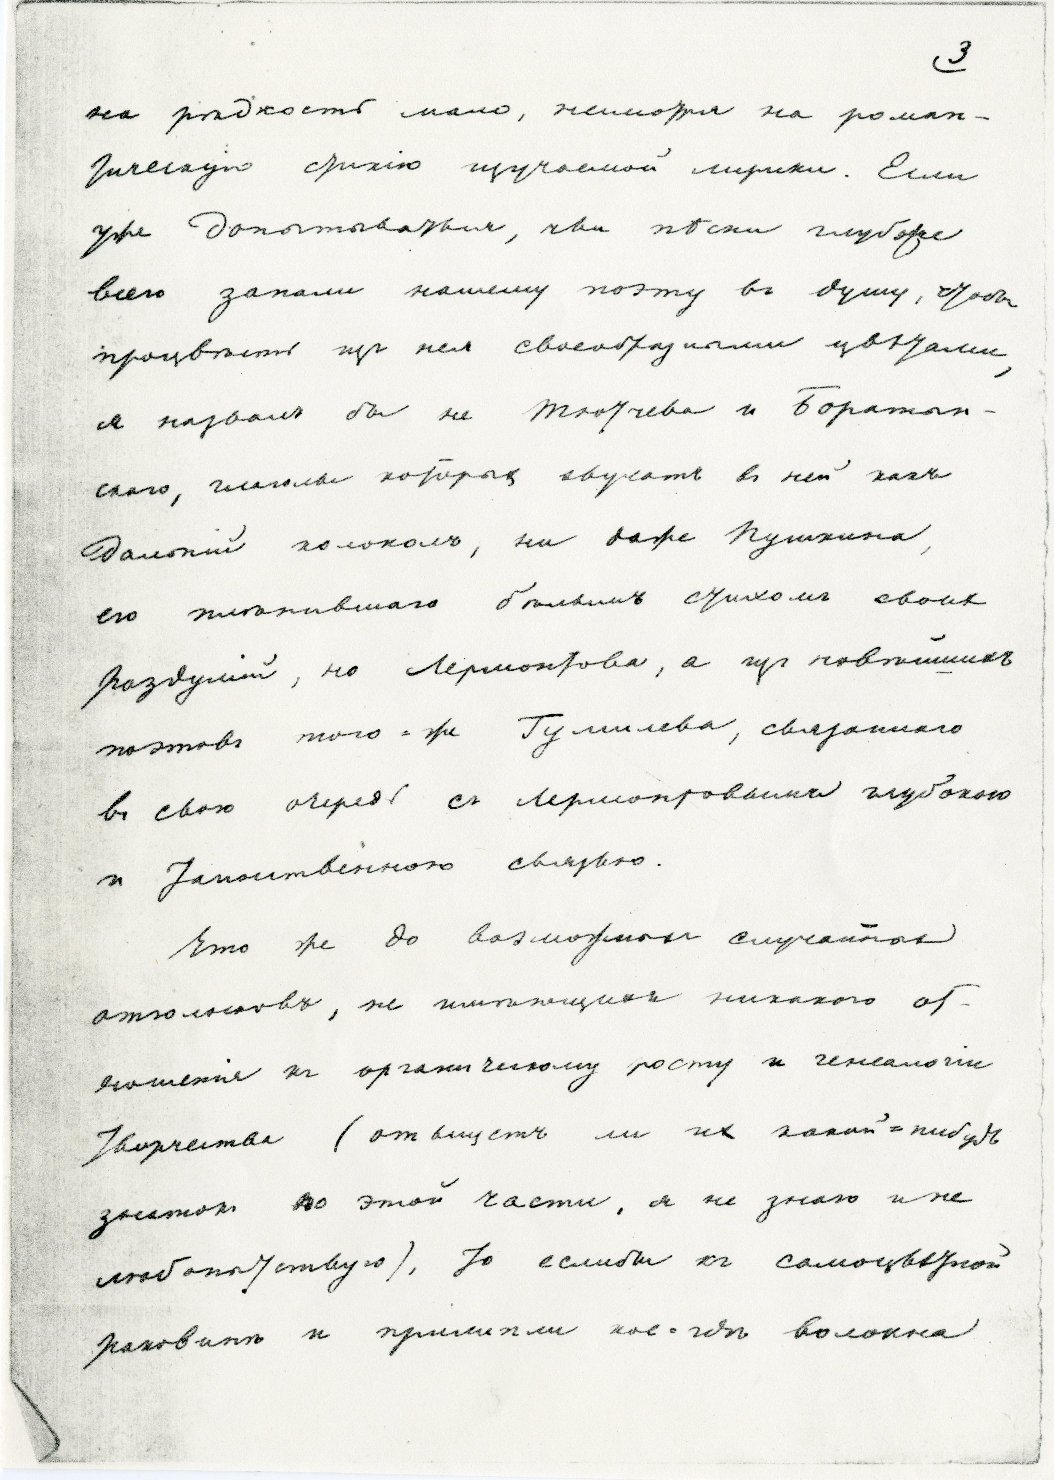 3
на рѣдкость мало, несмотря на роман-
тическую стихію изучаемой лирики. Если
уже допытываться, чьи пѣсни глубже
всего запали нашему поэту въ душу, чтобы
процвѣсть изъ нея своеобразными цвѣтами,
я назвалъ бы не Тютчева и Боратын-
скаго, глаголы которыхъ звучатъ въ ней какъ
далекій колоколъ, ни даже Пушкина,
его плѣнившаго бѣлымъ стихомъ своихъ
раздумій, но Лермонтова, а изъ новѣйшихъ
поэтовъ того-же Гумилева, связаннаго
въ свою очередь съ Лермонтовымъ глубокою
и таинственною связью.
Что же до возможныхъ случайныхъ
отголосковъ, не имѣющихъ никакого от-
ношенія къ органическому росту и генеалогіи
творчества (отыщетъ ли ихъ какой-нибудь
знатокъ по этой части, я не знаю и не
любопытствую), то еслибы къ самоцвѣтной
раковинѣ и прилипли кое-гдѣ волокна